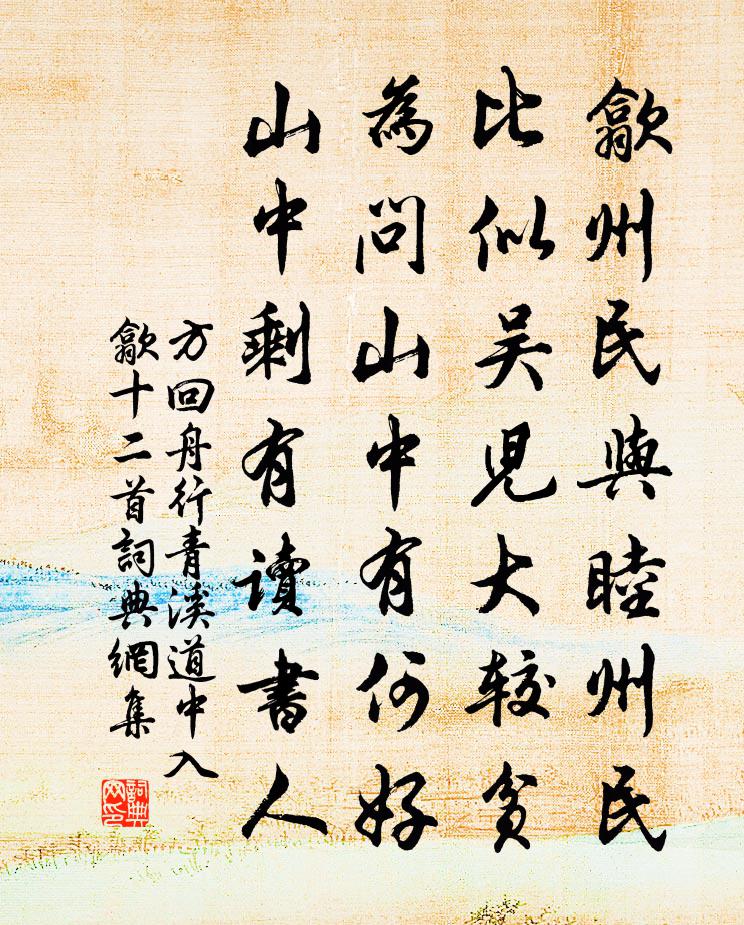 歙州民與睦州民
比似吴児大較貧
為問山中有何好
山中剩有讀書人
方回舟行青溪道中入
歙十二首詞典網集
詞典
网印